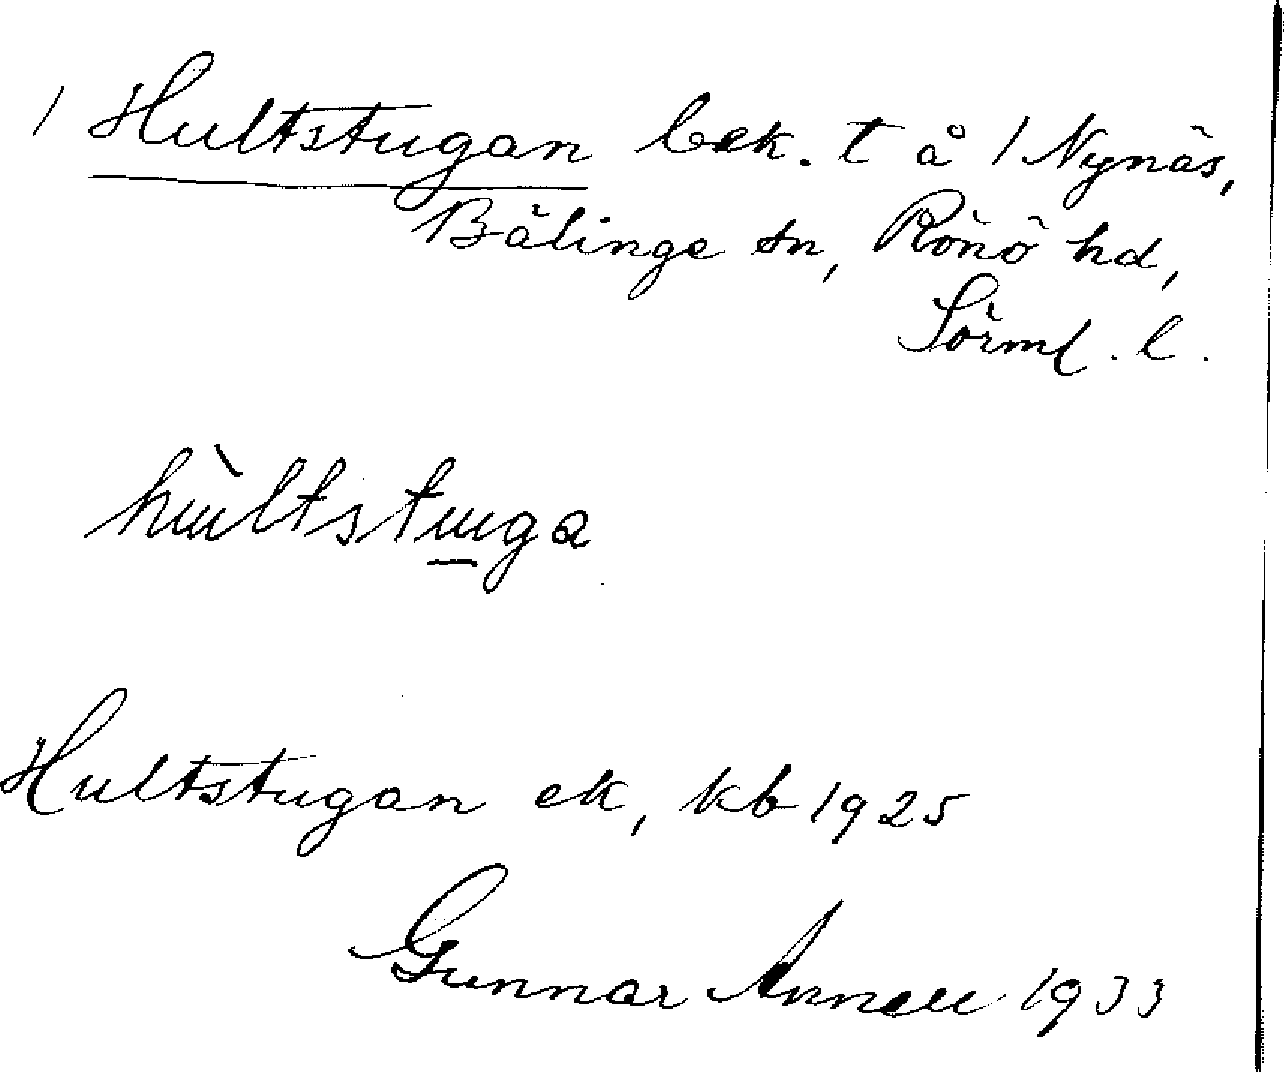 / Hultstugan bek. t å / Nynäs,
Bälinge sn, Rönö hd,
Sörml. l.
hùltstuga
Hultstugan ek, kb 1925
Gunnar Annell 1933